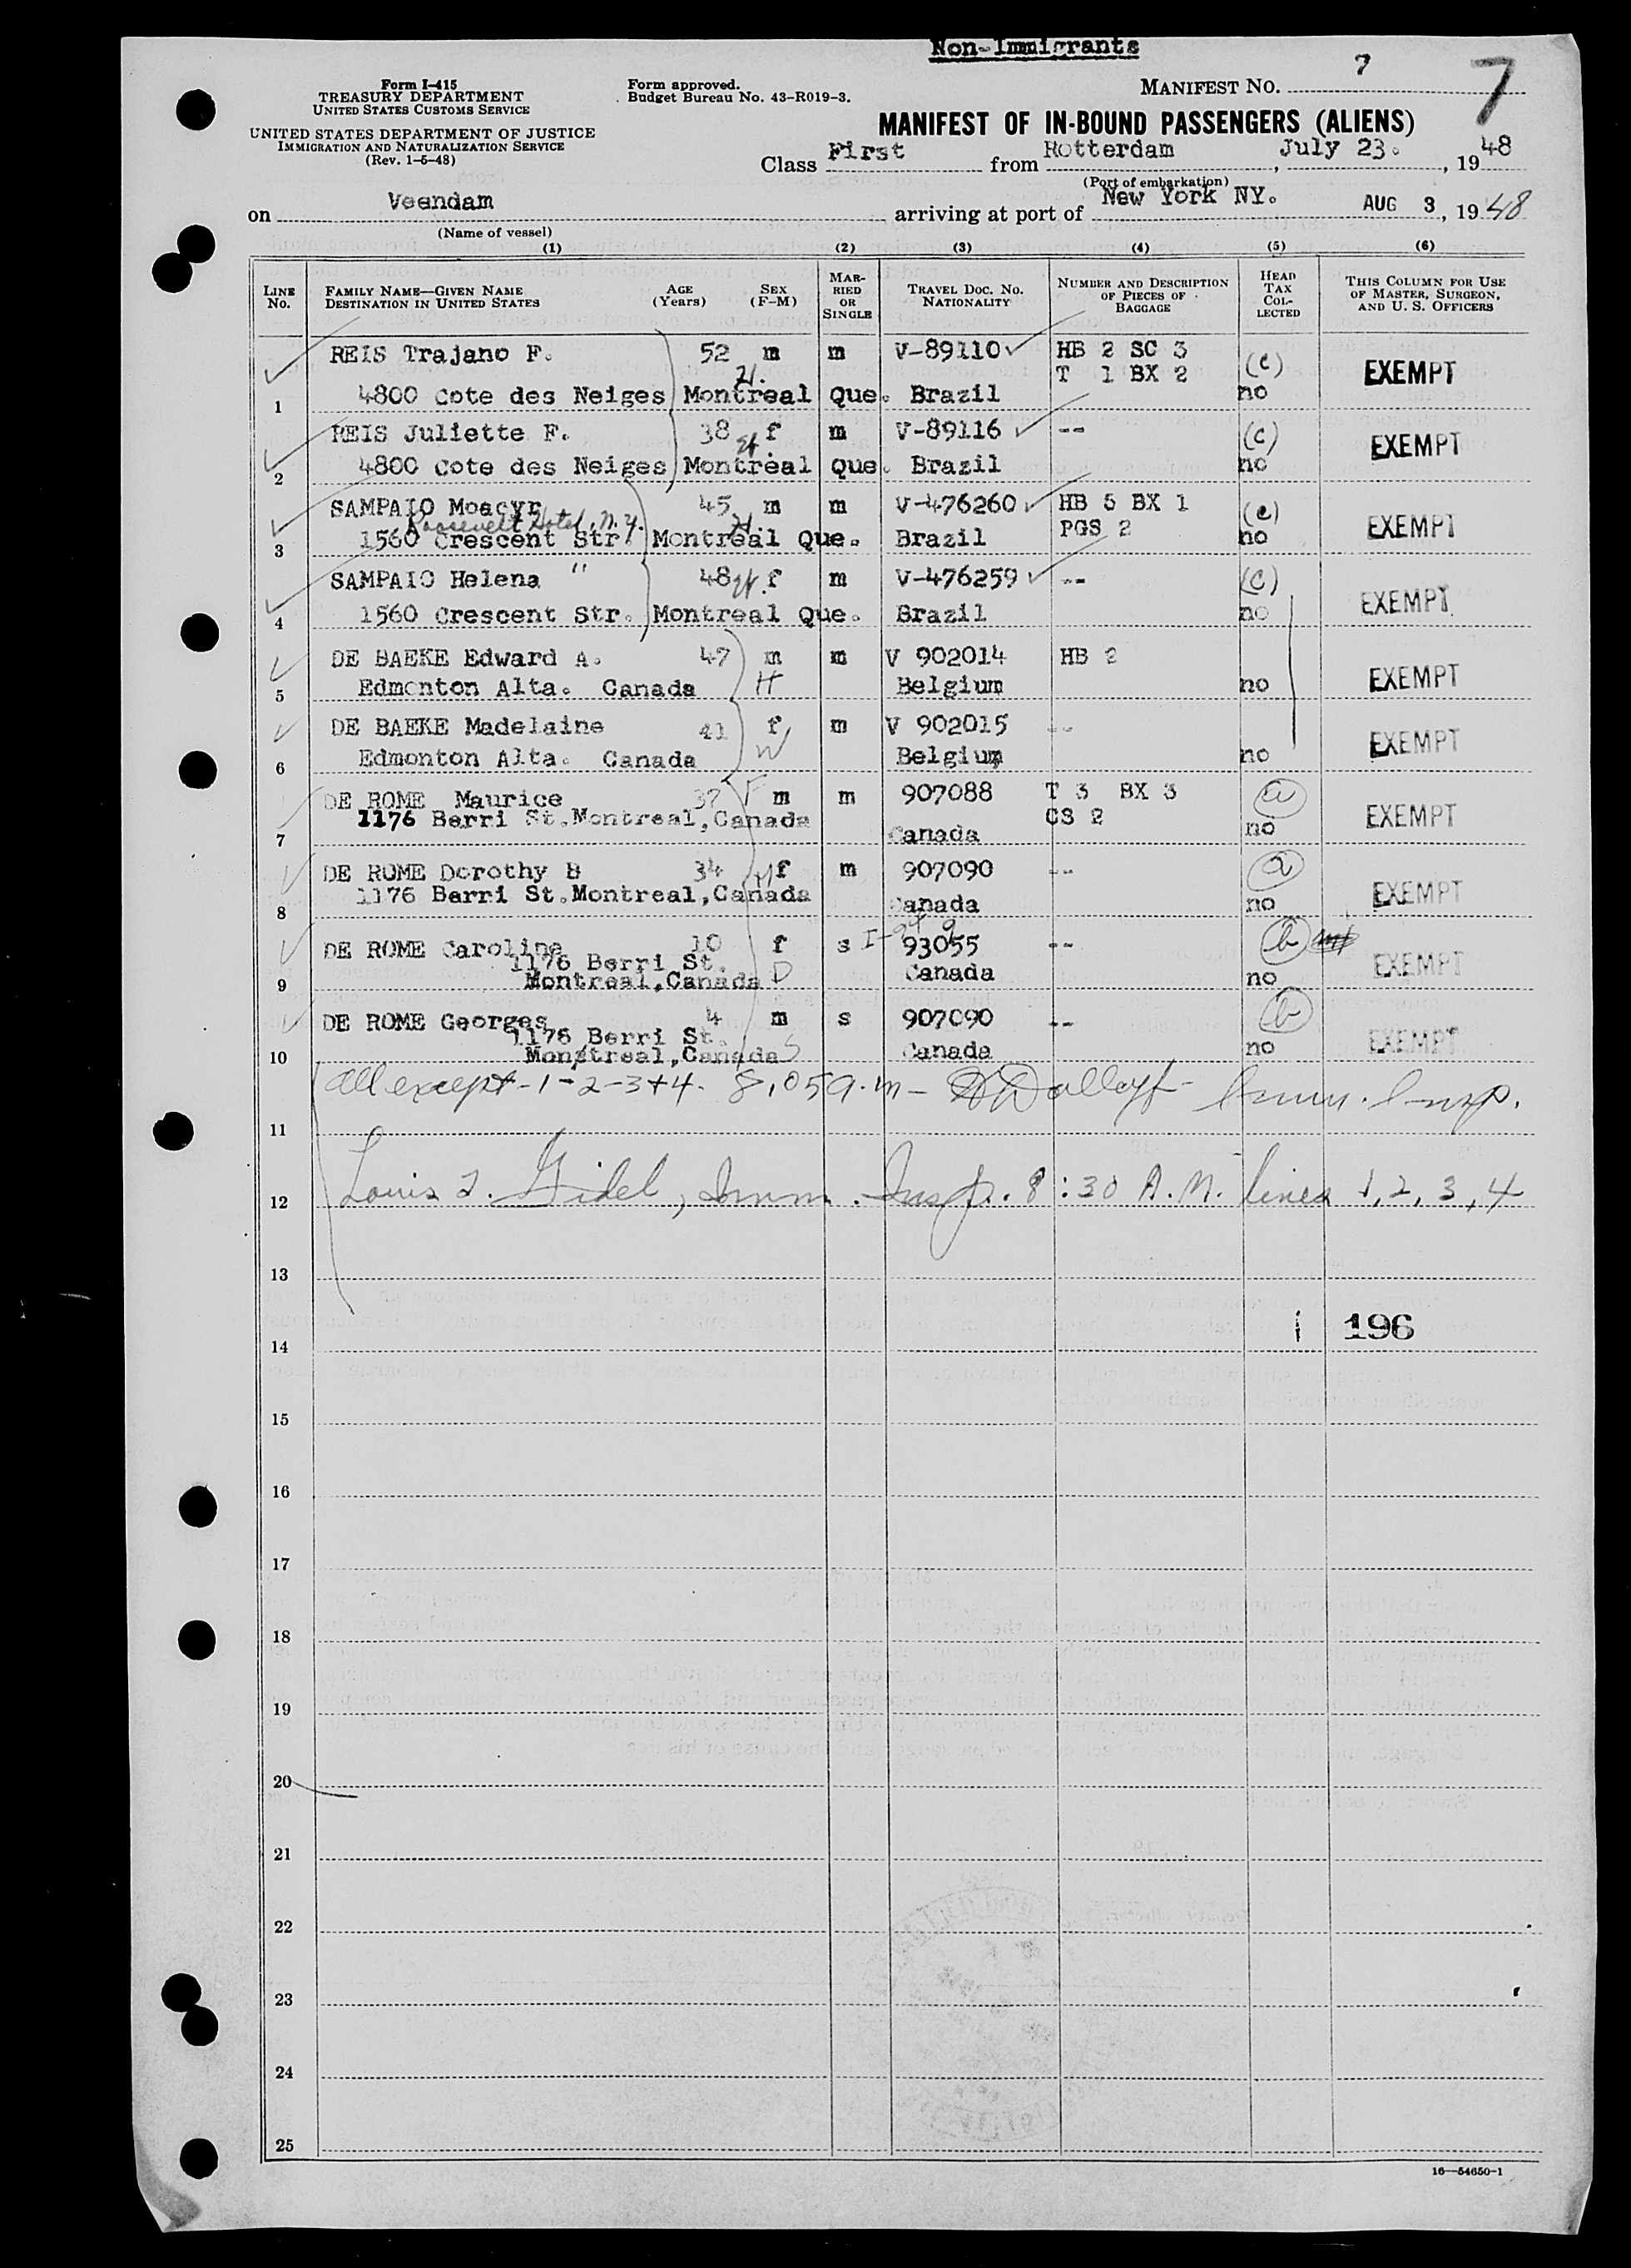 Non-Immigrants
Form I-415
TREASURY DEPARTMENT
UNITED STATES CUSTOMS SERVICE
UNITED STATES DEPARTMENT OF JUSTICE
IMMIGRATION AND NATURALIZATION SERVICE
(Rev. 1-5-48)
Form approved.
Budget Bureau No. 43-R019-3.
MANIFEST NO. 7
7
MANIFEST OF IN-BOUND PASSENGERS (ALIENS)
Class First from Rotterdam, July 23., 1948
(Port of embarkation)
on Veendam arriving at port of New York NY. AUG 3, 1948
(Name of vessel)
(1) (2) (3) (4) (5) (6)
LINE No. FAMILY NAME—GIVEN NAME DESTINATION IN UNITED STATES AGE (Years) SEX (F-M) MARRIED OR SINGLE TRAVEL DOC. NO. NATIONALITY NUMBER AND DESCRIPTION OF PIECES OF BAGGAGE HEAD TAX COLLECTED THIS COLUMN FOR USE OF MASTER, SURGEON, AND U. S. OFFICERS
REIS Trajano F. 52 m m V-89110 HB 2 SC 3 (c) EXEMPT
T 1 BX 2
1 4800 cote des Neiges Montreal Que. Brazil no
REIS Juliette F. 38 f m V-89116 -- (c) EXEMPT
2 4800 cote des Neiges Montreal Que. Brazil no
SAMPAIO Moacyr 45 m m V-476260 HB 5 BX 1 (c) EXEMPT
Roosevelt Hotel, N.Y. PGS 2
3 1560 Crescent Str. Montreal Que. Brazil no
SAMPAIO Helena " 48 f m V-476259 -- (c) EXEMPT
4 1560 Crescent Str. Montreal Que. Brazil no
DE BAEKE Edward A. 47 m m V 902014 HB 2 EXEMPT
5 Edmonton Alta. Canada H Belgium no
DE BAEKE Madelaine 41 f m V 902015 -- EXEMPT
6 Edmonton Alta. Canada W Belgium no
DE ROME Maurice 37 F m m 907088 T 3 BX 3 (a) EXEMPT
1176 Berri St.Montreal,Canada CS 2
7 Canada no
DE ROME Dorothy B 34 M f m 907090 -- (a) EXEMPT
1176 Berri St.Montreal,Canada
8 Canada no
I-94
DE ROME Caroline 10 f s 93055 -- (b) EXEMPT
1176 Berri St.
9 Montreal,Canada D Canada no
DE ROME Georges 4 m s 907090 -- (b) EXEMPT
1176 Berri St.
10 Montreal,Canada S Canada no
All except -1-2-3+4. 8,05 a.m - Imm. Insp.
11
12 Louis J. Gidel, Imm. Insp. 8:30 A.M. lines 1, 2, 3, 4
13
14 196
15
16
17
18
19
20
21
22
23
24
25
16—54650-1